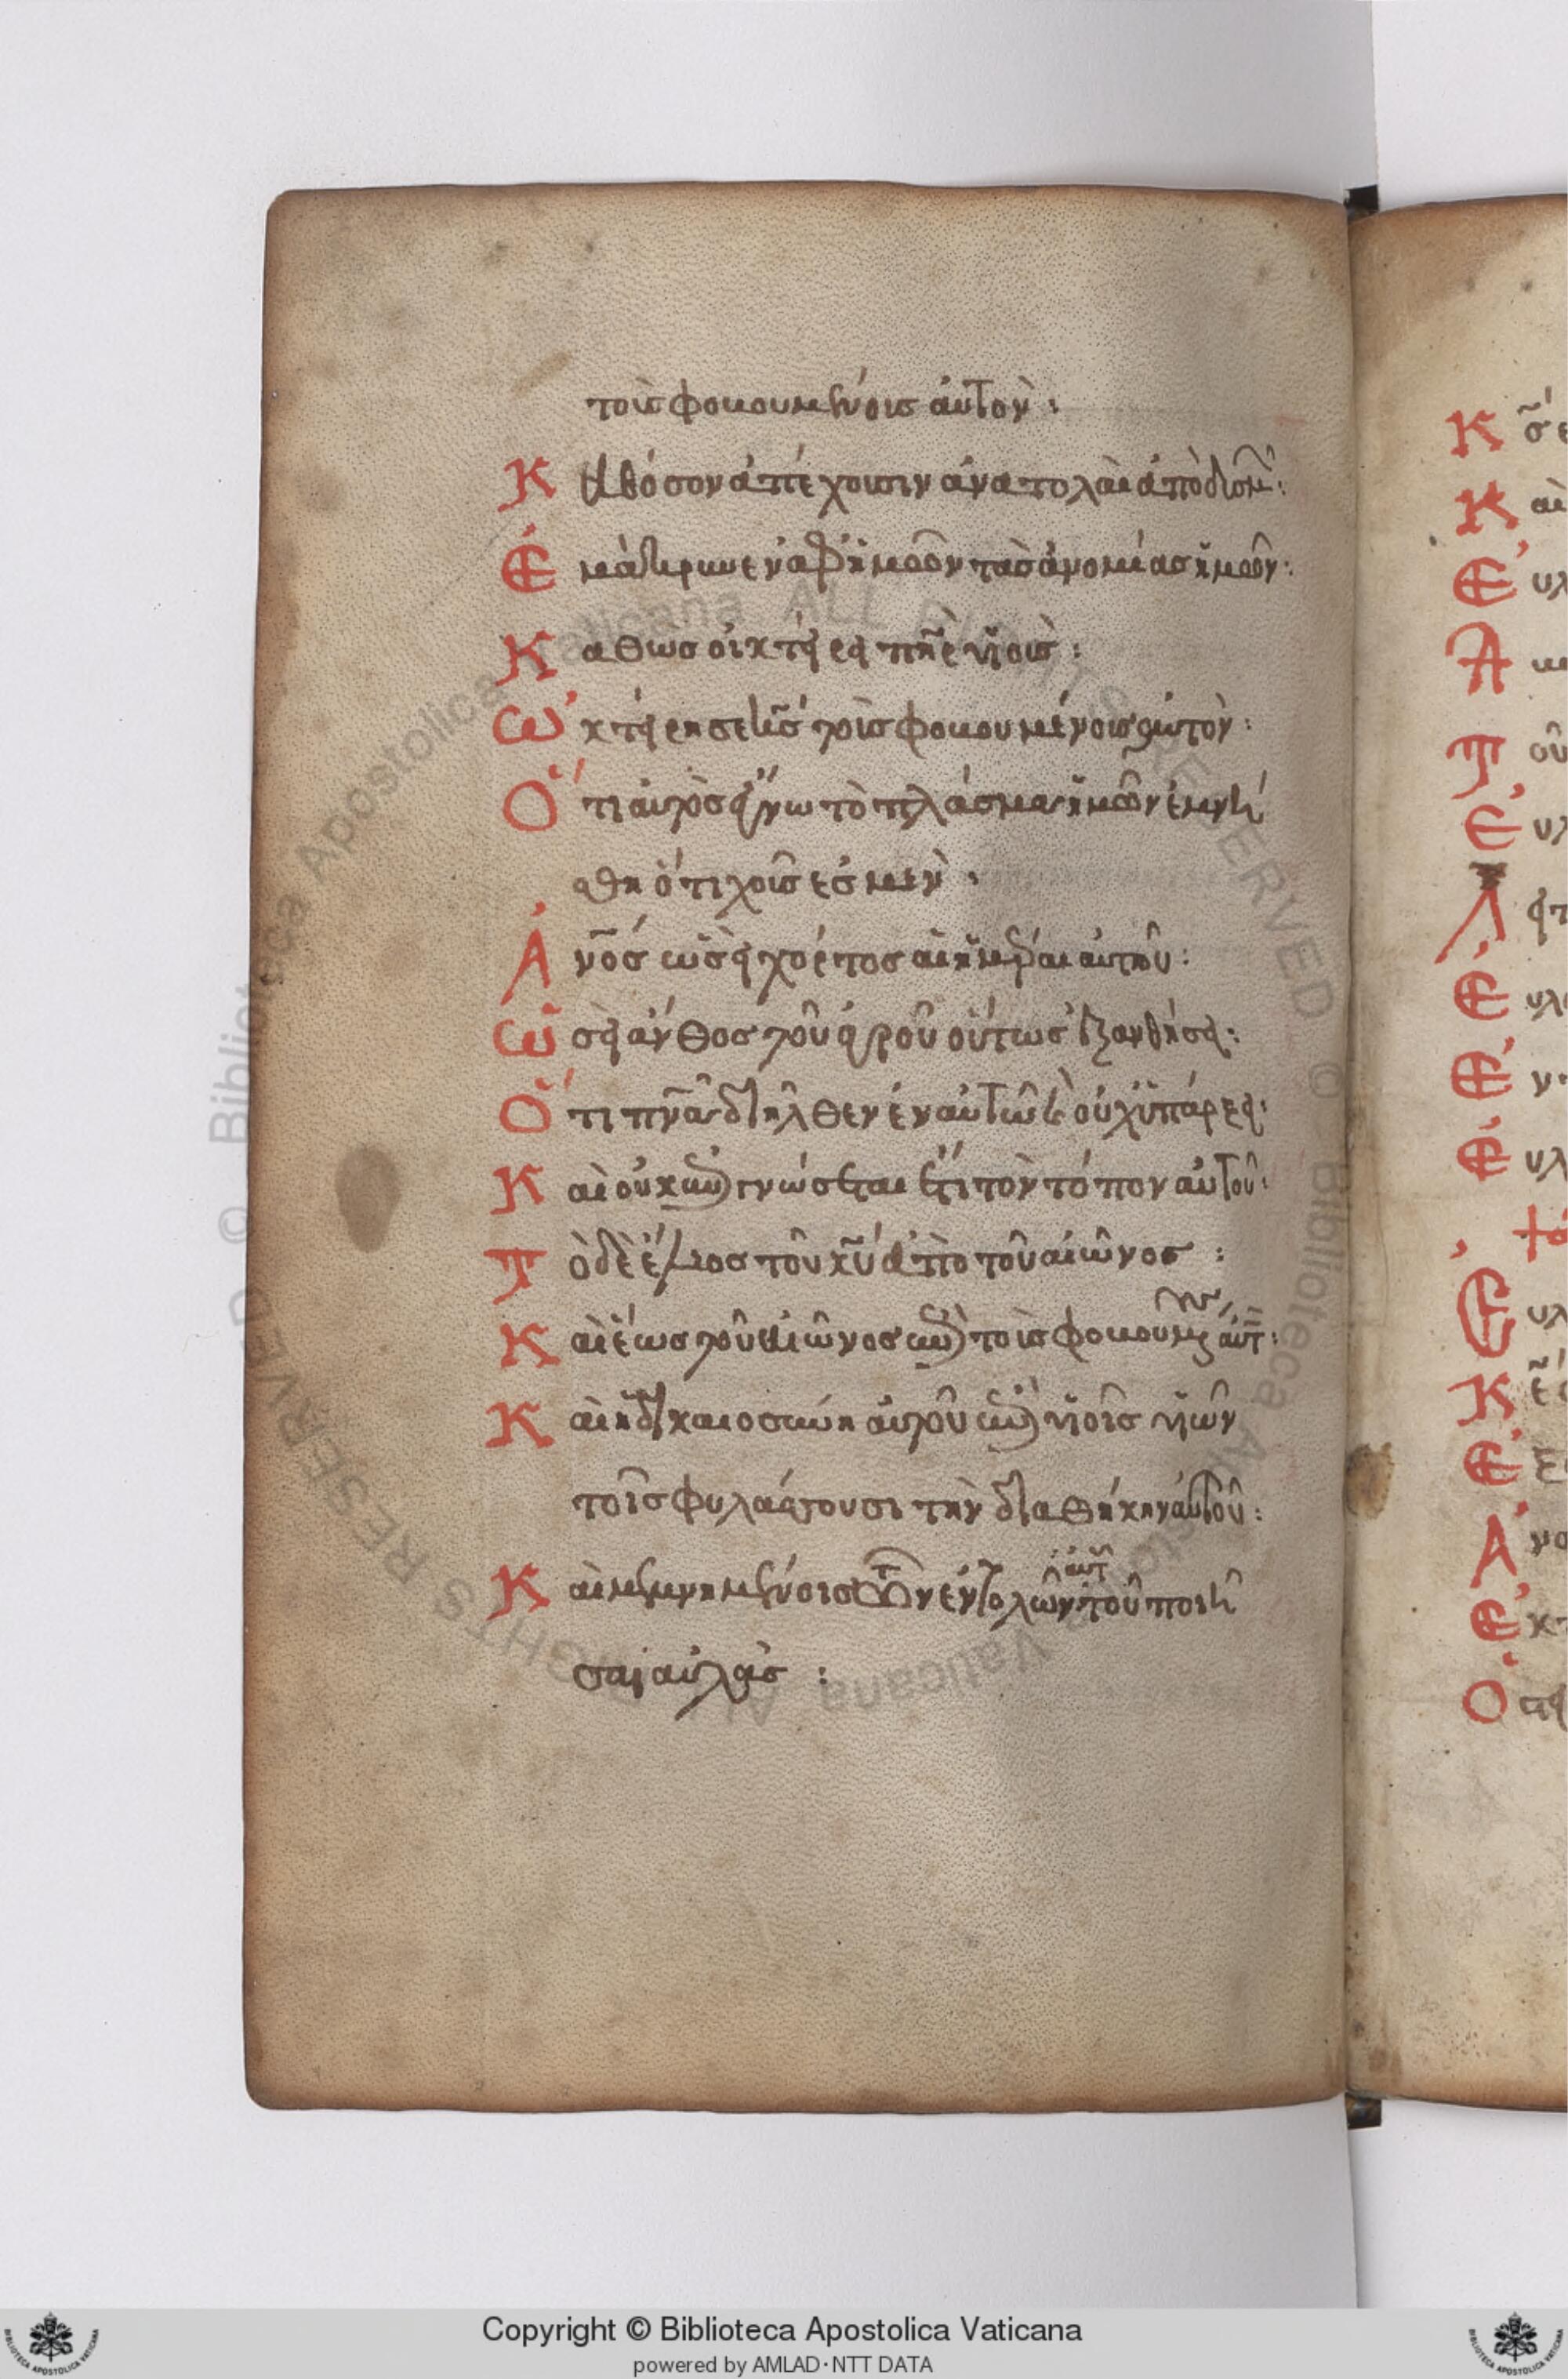 τοῖς φοβουμένοις αὐτὸν :
Καθόσον ἀπέχουσιν ἀνατολαὶ ἀπὸ δυσμ :
Ἐμάκρυνεν ἀφ ἡμῶν τὰς ἀνομίας ἡμῶν :
Καθὼς οἰκτείρει πηρ υἱοὺς :
Ὠκτείρησεν κς τοὺς φοβουμένους αὐτὸν :
Ὅτι αὐτὸς ἔγνω τὸ πλάσμα ἡμῶν ἐμνή
σθη ὅτι χοῦς ἐσμὲν :
Ἀνος ὡσεὶ χόρτος αἱ ἡμέραι αὐτοῦ :
Ὡσεὶ ἄνθος τοῦ ἀγροῦ οὕτως ἐξανθήσει :
Ὅτι πνα διῆλθεν ἐν αὐτῷ καὶ οὐχ ὑπάρξει :
Καὶ οὐκ ἐπιγνώσεται ἔτι τὸν τόπον αὐτοῦ :
Τὸ δὲ ἔλεος τοῦ κυ ἀπὸ τοῦ αἰῶνος :
Καὶ ἕως τοῦ αἰῶνος ἐπὶ τοῖς φοβουμ αὐτ :
Καὶ ἡ δικαιοσύνη αὐτοῦ ἐπὶ υἱοῖς υἱῶν
τοῖς φυλάσσουσι τὴν διαθήκην αὐτοῦ :
Καὶ μεμνημένοις τῶν ἐντολῶν αὐτ τοῦ ποιῆ
σαι αὐτὰς :
Copyright © Biblioteca Apostolica Vaticana
powered by AMLAD·NTT DATA